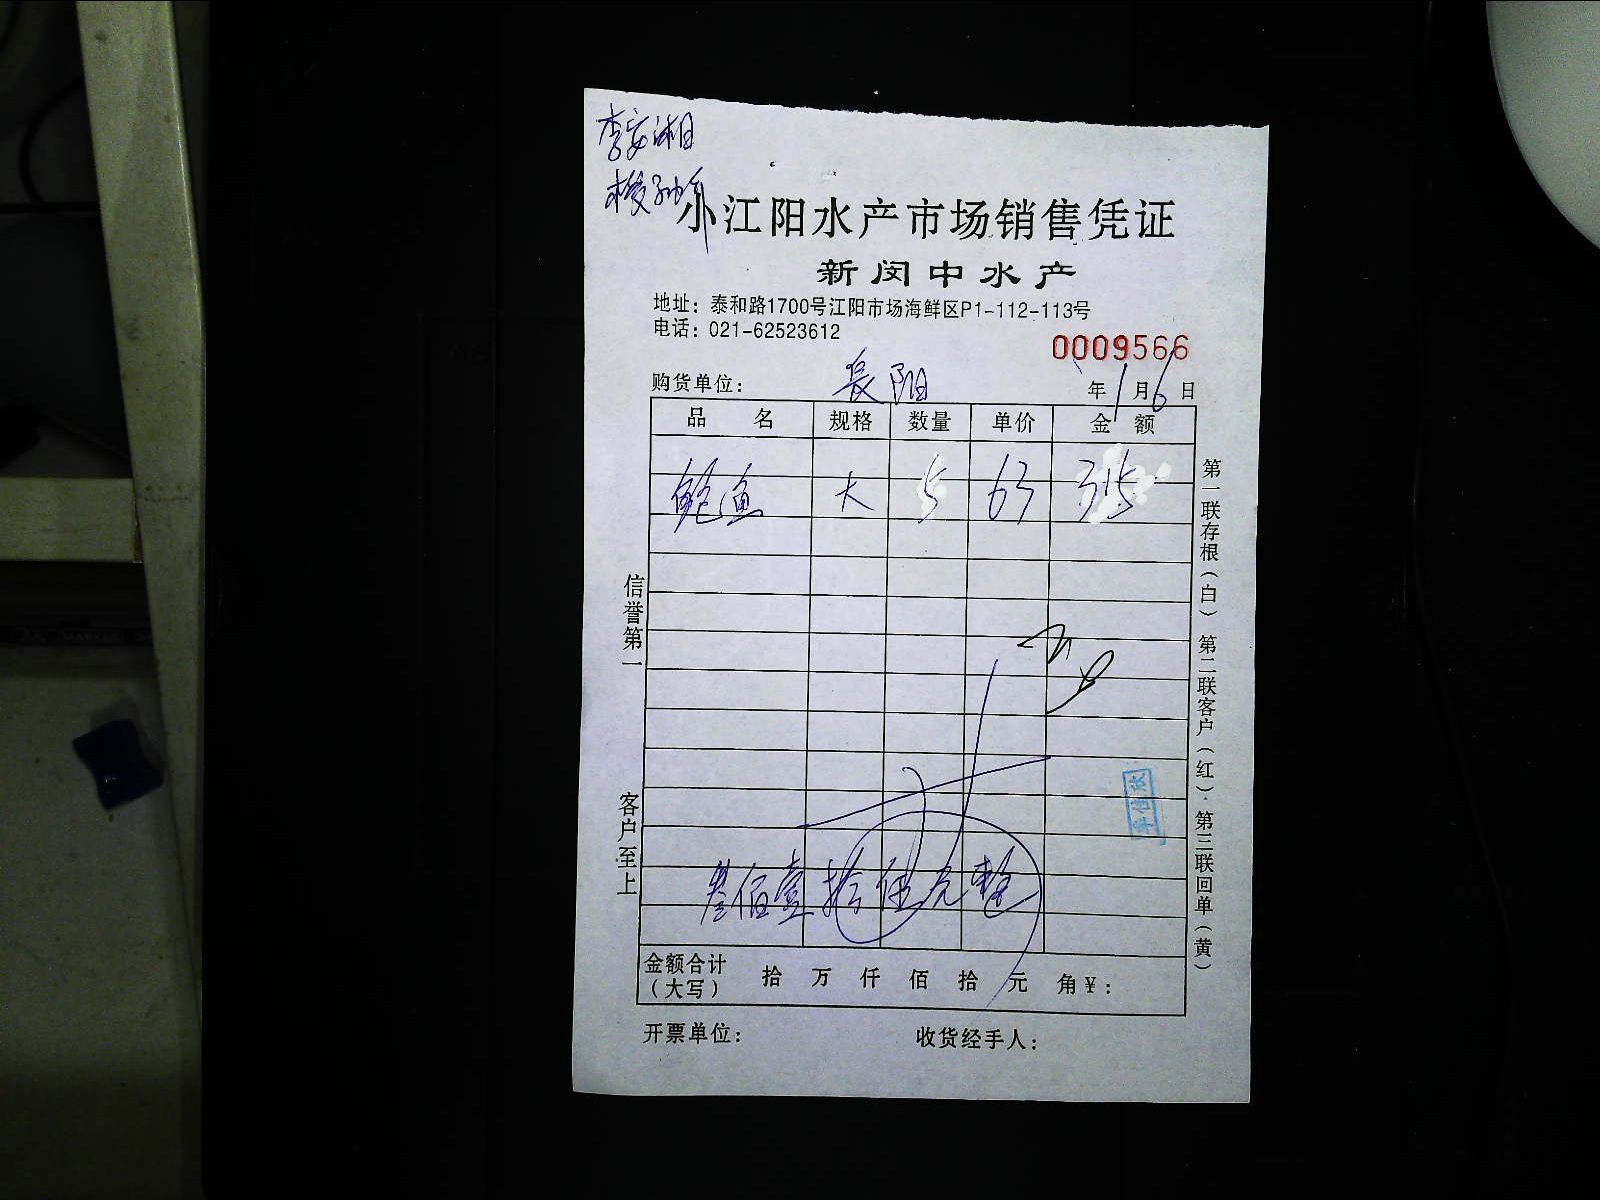 小江阳水产市场销售凭证
新闵中水产
地址：泰和路1700号江阳市场海鲜区P1-112-113号
电话：021-62523612
0009566
购货单位： 長阳 年1月6日
品 名 规格 数量 单价 金 额
鲍鱼 大 5 63 315
叁佰壹拾伍元整
金额合计（大写） 拾 万 仟 佰 拾 元 角￥：
开票单位： 收货经手人：
信誉第一
客户至上
第一联存根（白）第二联客户（红）·第三联回单（黄）